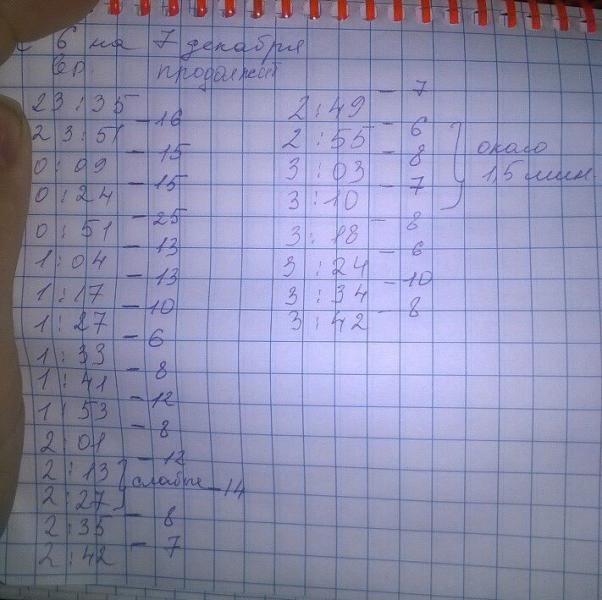 с 6 на 7 декабря
Вр. продолжит
23:35
- 16
23:51
- 15
0:09
- 15
0:24
- 25
0:51
- 13
1:04
- 13
1:17
- 10
1:27
- 6
1:33
- 8
1:41
- 12
1:53
- 8
2:01
- 12
2:13
слабые - 14
2:27
- 8
2:35
- 7
2:42
- 7
2:49
- 6
2:55
- 8
3:03
- 7
3:10
- 8
3:18
- 6
3:24
- 10
3:34
- 8
3:42
около
1,5 мин.